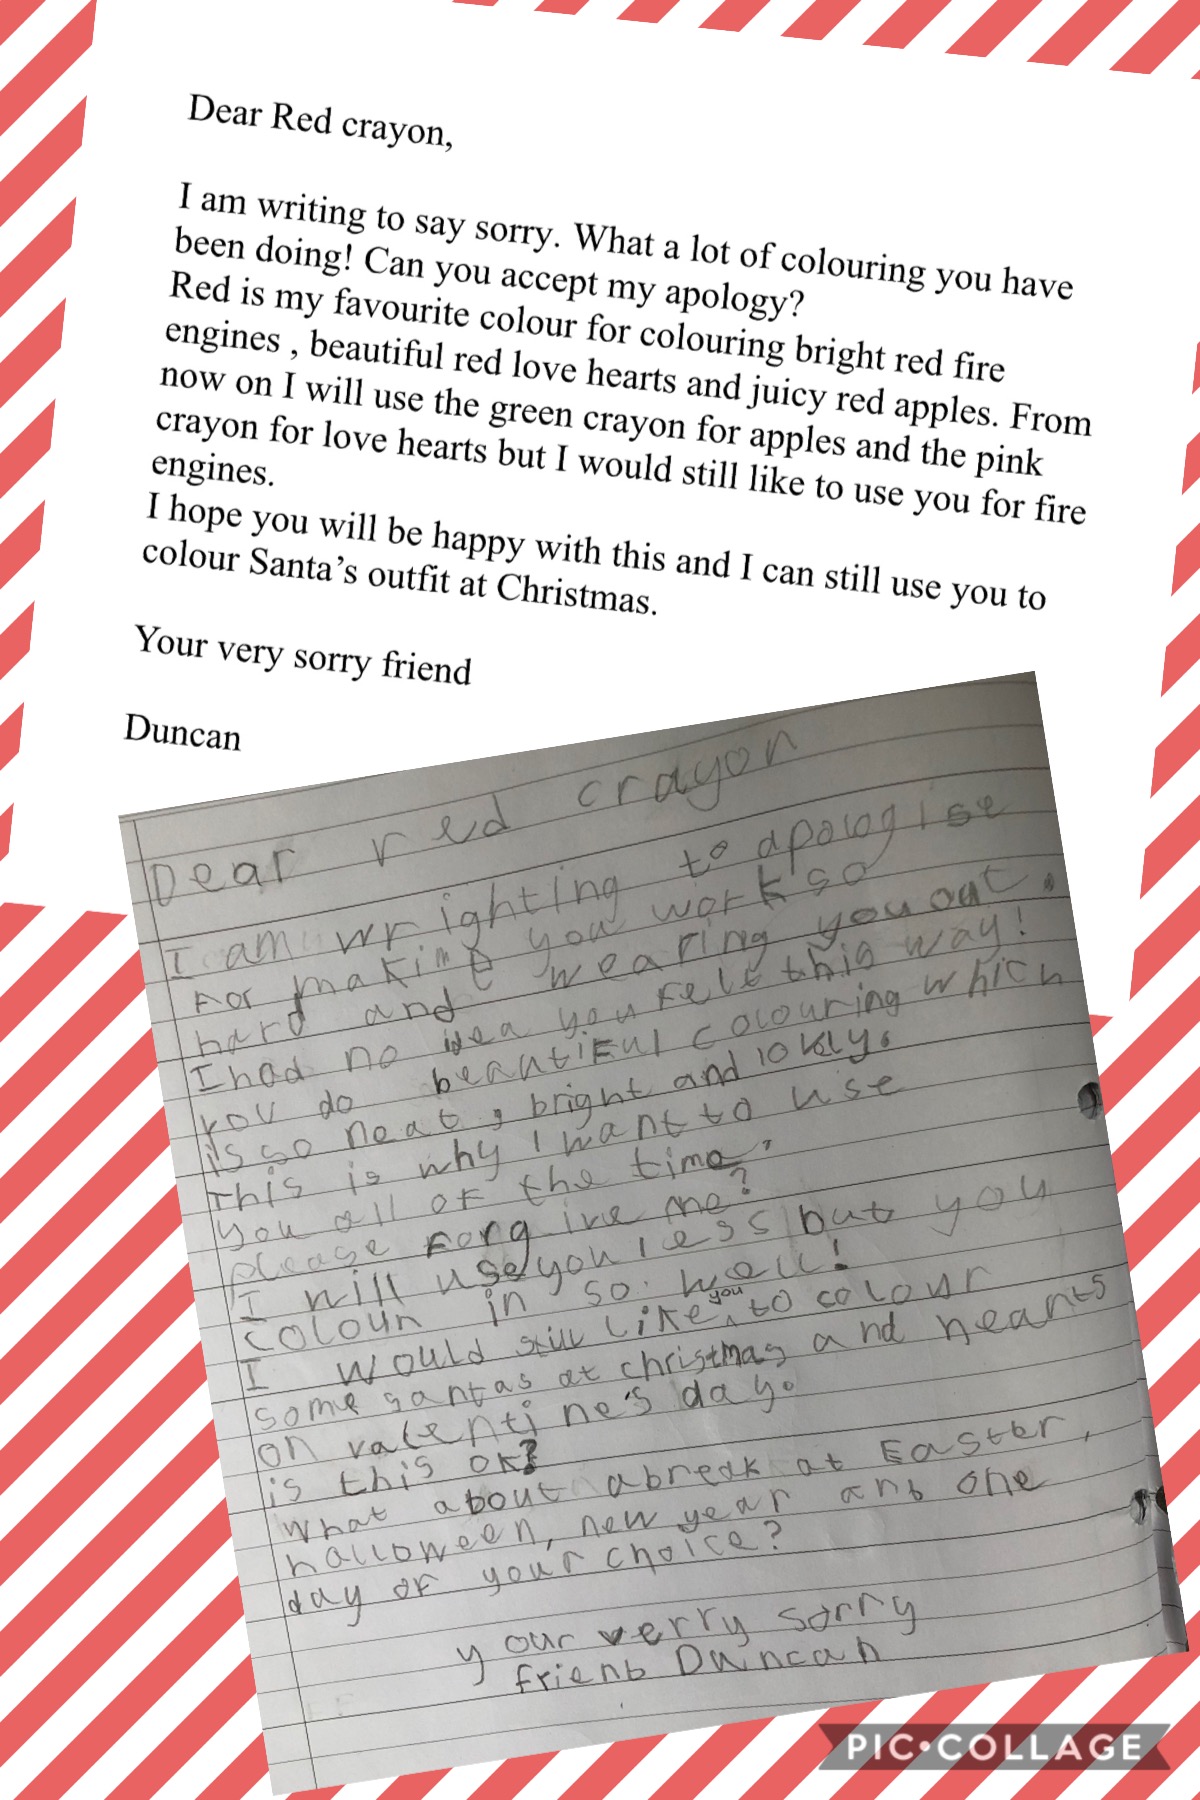 Dear Red crayon,
I am writing to say sorry. What a lot of colouring you have
been doing! Can you accept my apology?
Red is my favourite colour for colouring bright red fire
engines , beautiful red love hearts and juicy red apples. From
now on I will use the green crayon for apples and the pink
crayon for love hearts but I would still like to use you for fire
engines.
I hope you will be happy with this and I can still use you to
colour Santa’s outfit at Christmas.
Your very sorry friend
Duncan
Dear red crayon
I am wrighting to apologise
For making you work so
hard and wearing you out.
I had no idea you felt this way!
you do beautiful colouring which
is so neat, bright and lovly.
This is why I want to use
you all of the time.
please forgive me?
I will use you less but you
colour in so well!
I would still like you to colour
some santas at christmas and hearts
on valentine's day.
is this ok?
what about a break at Easter,
halloween, new year anb one
day of your choice?
your verry sorry
frienb Duncan
PIC•COLLAGE